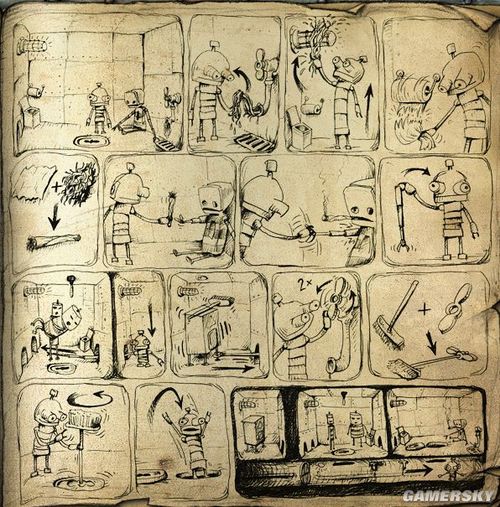 2x
GAMERSKY